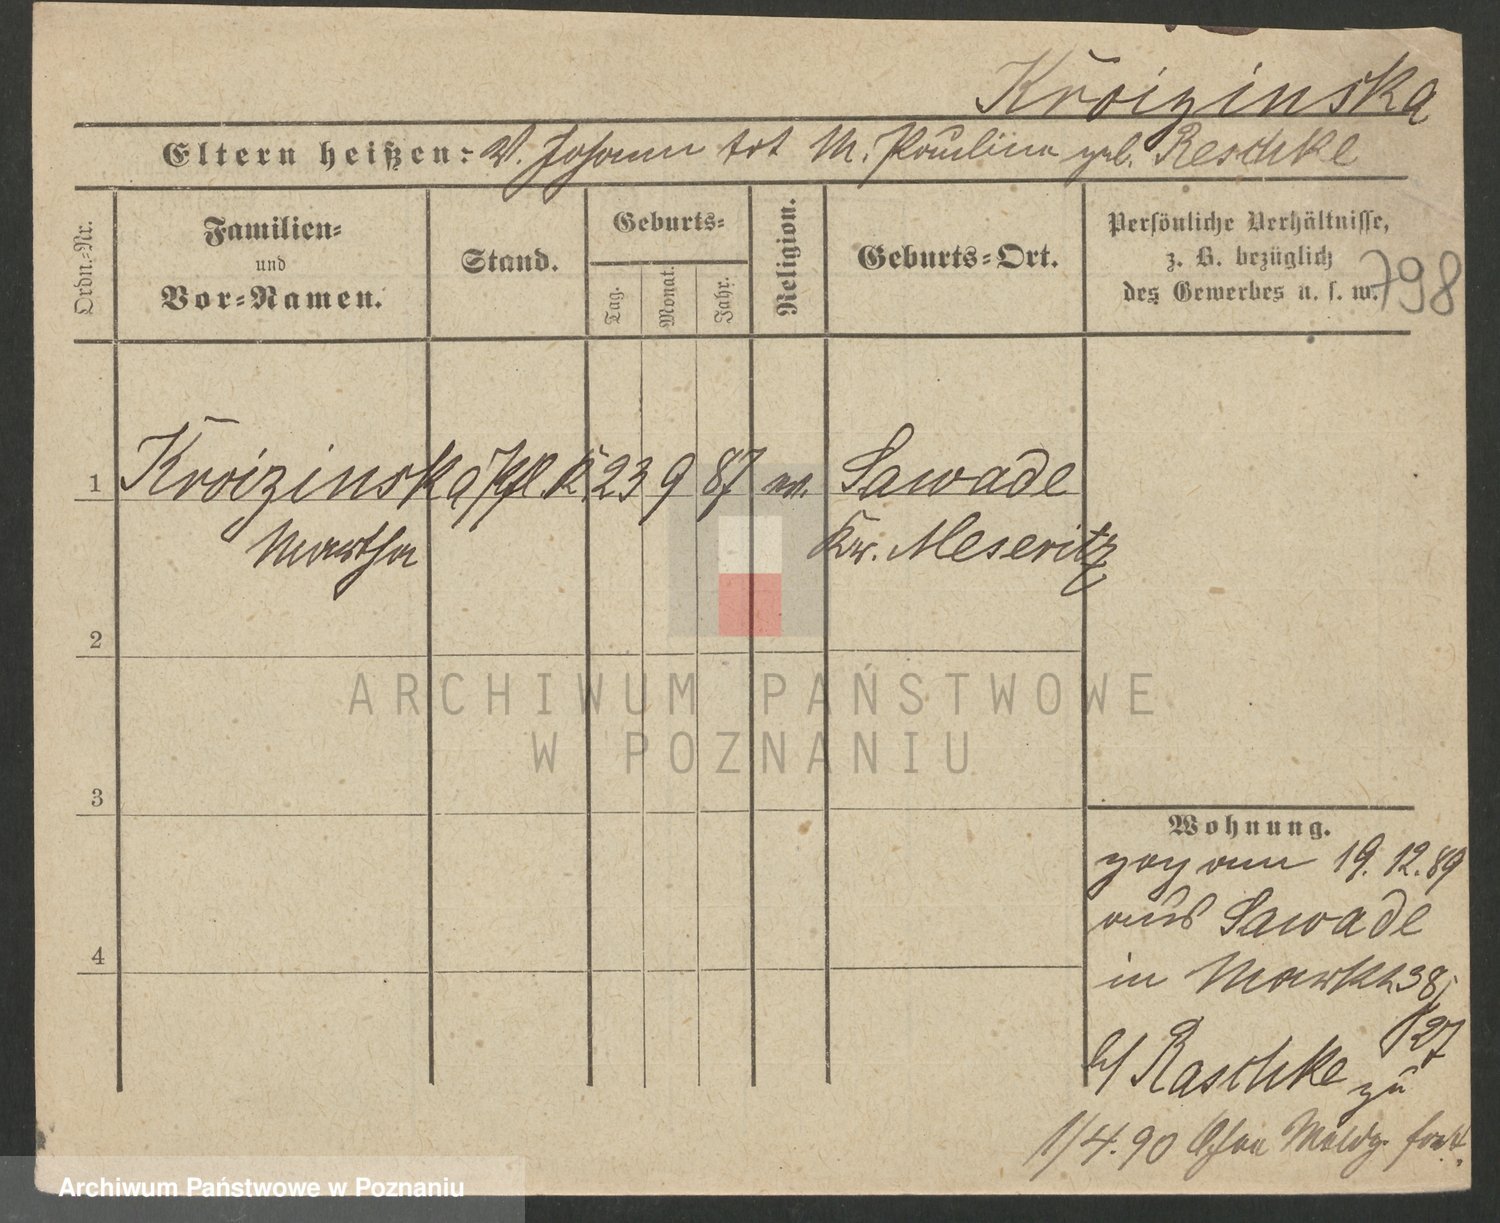 Kroizinska
Eltern heißen: V. Johann tot M. Paulina geb. Reschke
Ordn.-Nr.
Familien-
und
Vor-Namen.
Stand.
Geburts-
Tag.
Monat.
Jahr.
Religion.
Geburts-Ort.
Persönliche Verhältnisse,
z. B. bezüglich
des Gewerbes u. s. w.
798
1 Kroizinska Pfl. K. 23 9 87 ev. Sawade
Martha Kr. Meseritz
2
3
4
Wohnung.
zog am 19.12.89
aus Sawade
in Markt 38/
127
b/ Raschke zu
1/4.90 Ohne Meldg. fort.
ARCHIWUM PAŃSTWOWE
W POZNANIU
Archiwum Państwowe w Poznaniu